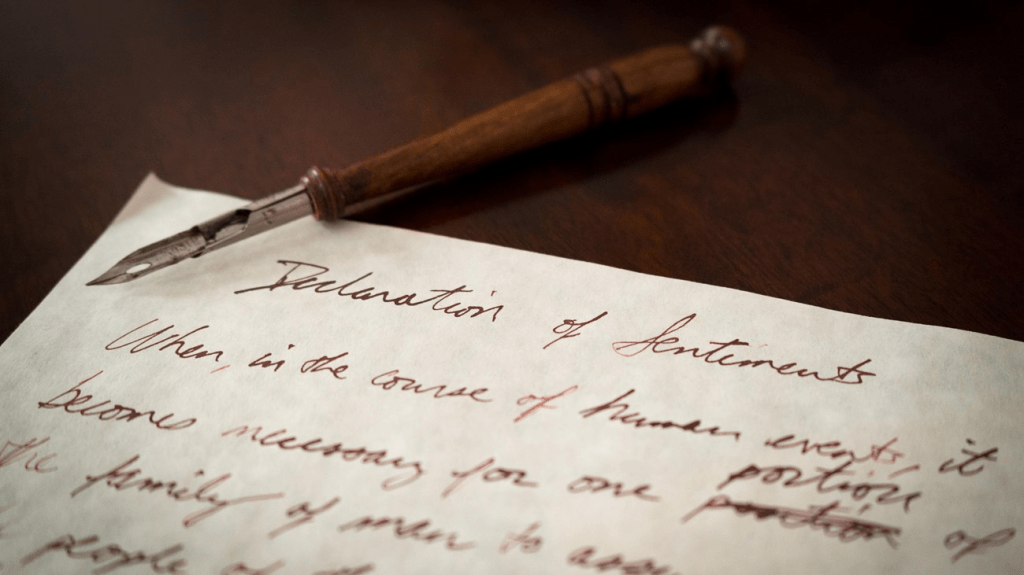 Declaration of Sentiments
When, in the course of human events, it
becomes necessary for one portion portion of
the family of man to
people of the